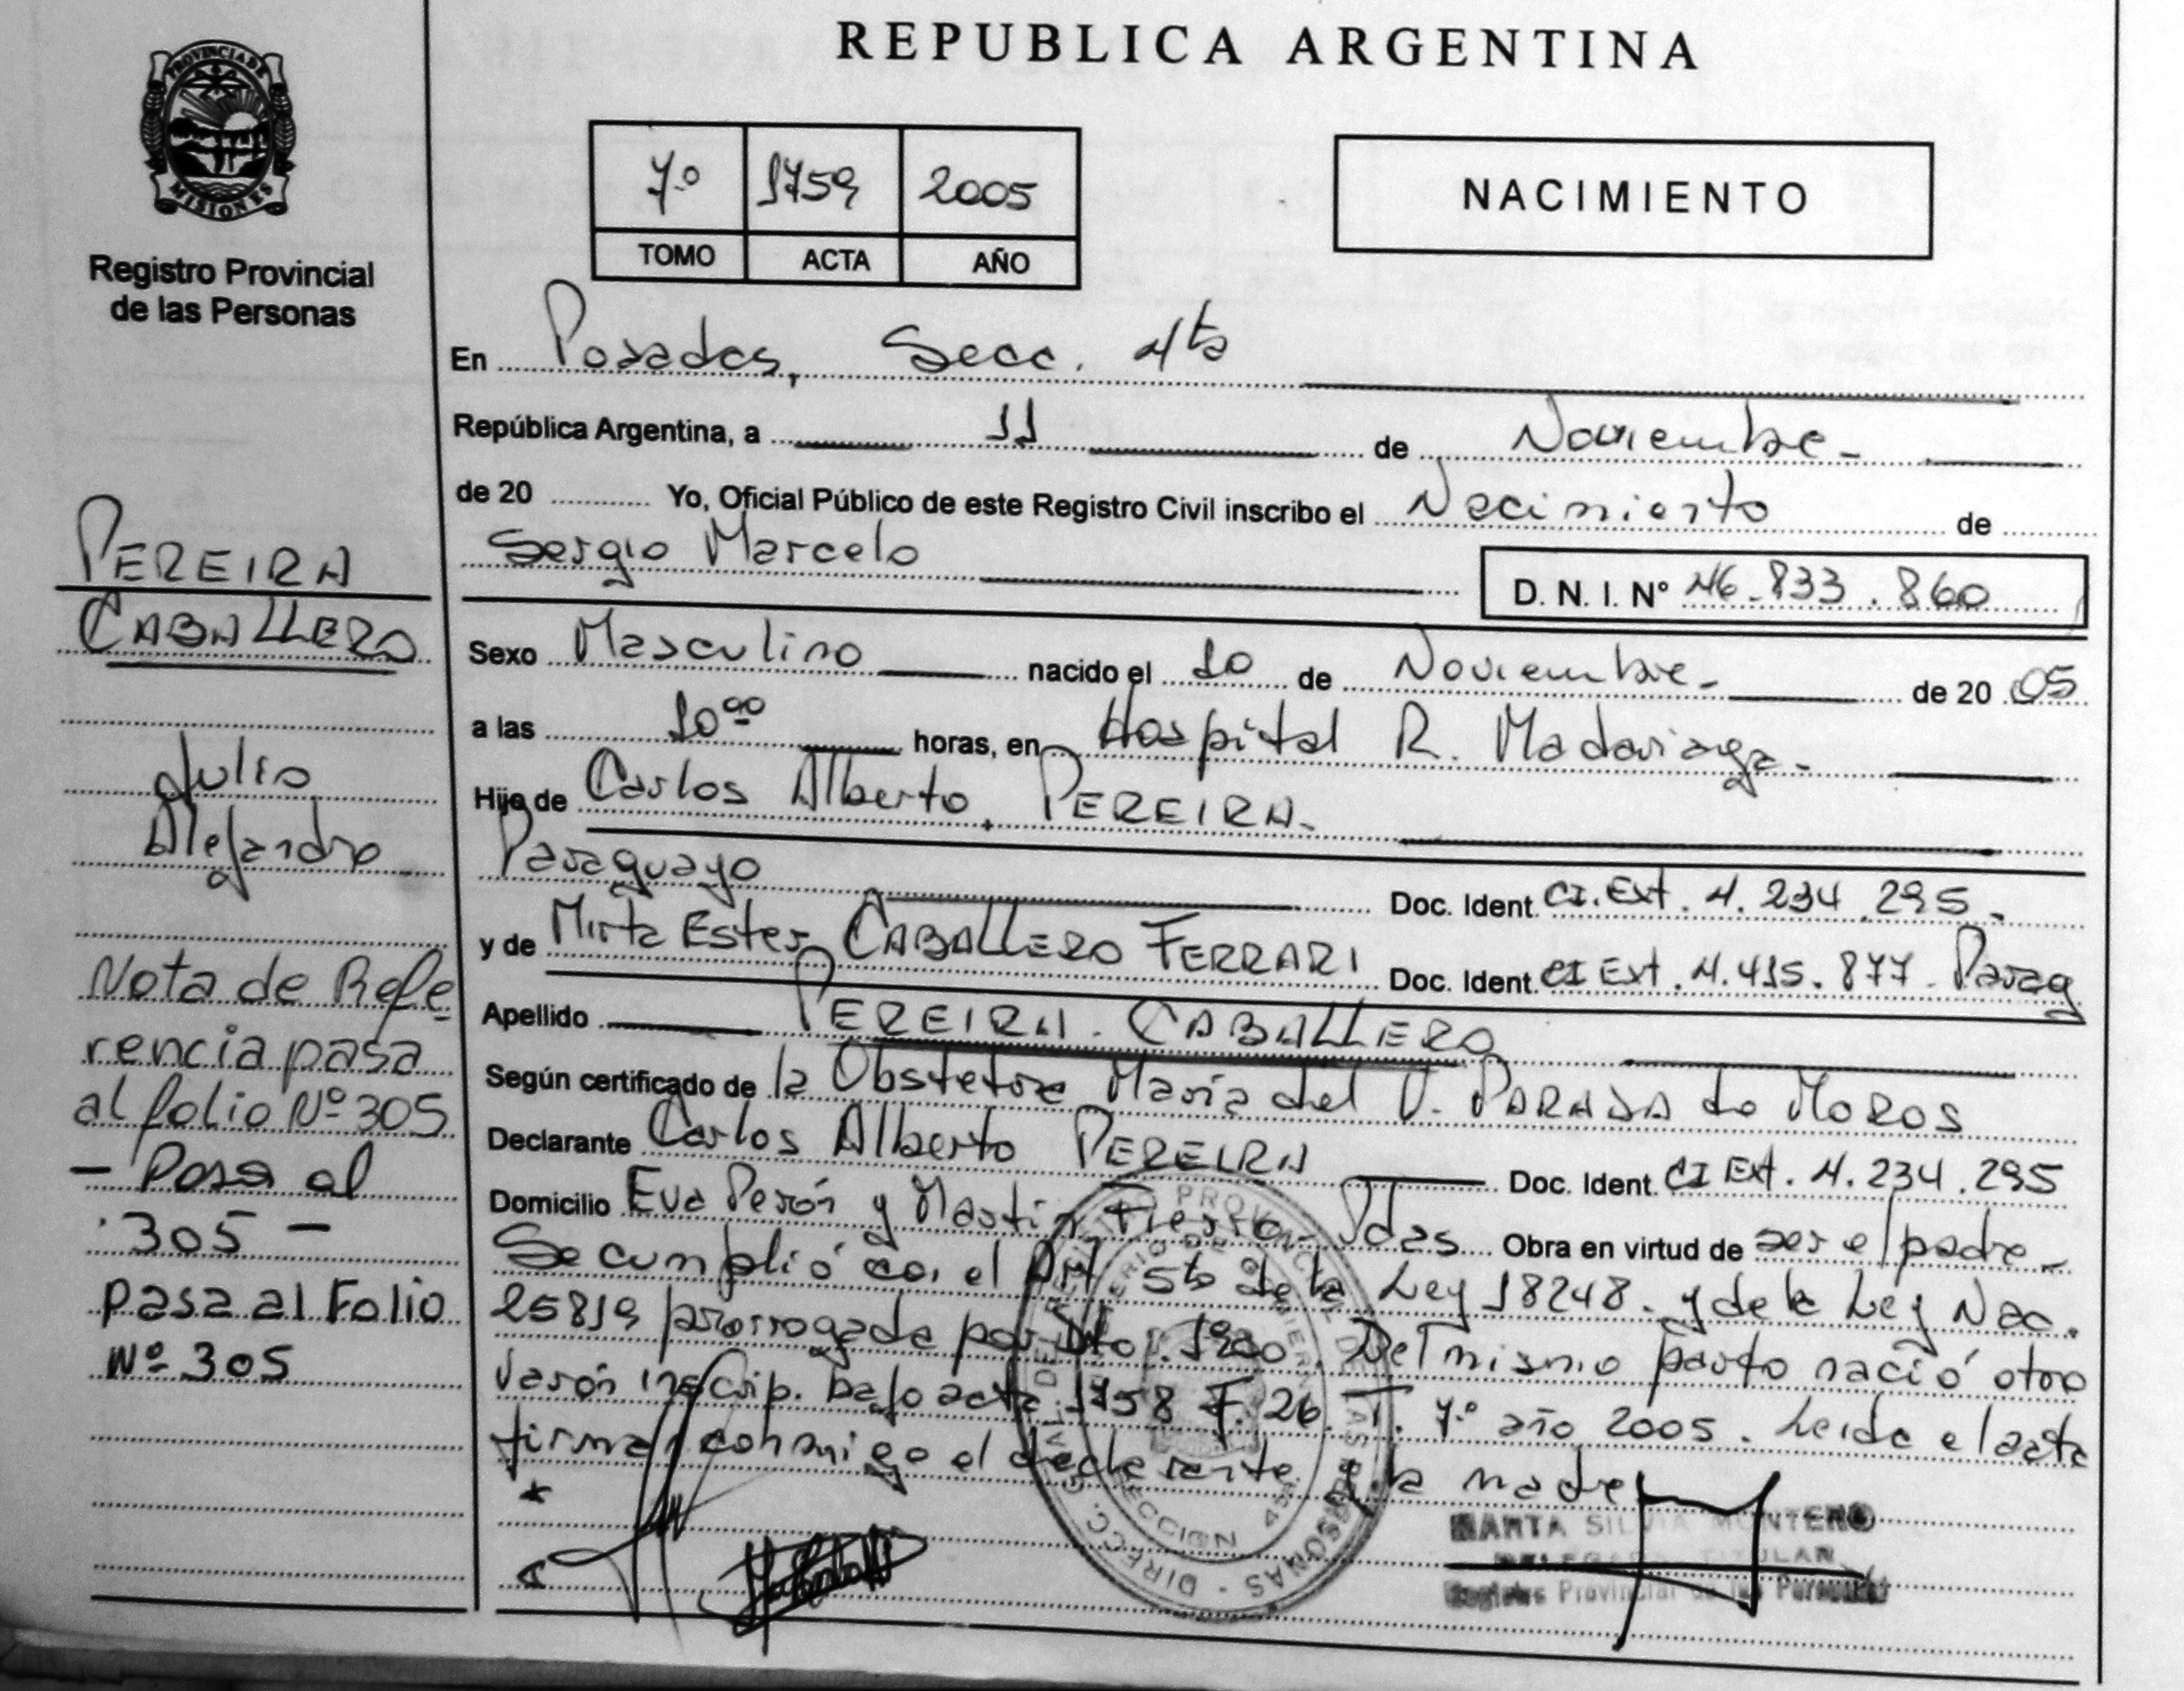 PROVINCIA DE
MISIONES
Registro Provincial
de las Personas
PEREIRA
CABALLERO
Julio
Alejandro
Nota de Refe
rencia pasa
al folio Nº 305
- Pasa al
305 -
pasa al Folio
Nº 305
REPUBLICA ARGENTINA
7º 1759 2005
TOMO ACTA AÑO
NACIMIENTO
En Posadas, Secc. 4ta
República Argentina, a 11 de Noviembre
de 20 Yo, Oficial Público de este Registro Civil inscribo el Nacimiento de
Sergio Marcelo D. N. I. Nº 46.833.860
Sexo Masculino nacido el 10 de Noviembre de 20 05
a las 10 00 horas, en Hospital R. Madariaga
Hijo de Carlos Alberto PEREIRA
Paraguayo Doc. Ident. CI. Ext. 4.234.295
y de Mirta Ester CABALLERO FERRARI Doc. Ident. CI Ext. 4.415.877 Parag
Apellido PEREIRA CABALLERO
Según certificado de la Obstetra María del V. de MOROS
Declarante Carlos Alberto PEREIRA Doc. Ident. CI Ext. 4.234.295
Domicilio Eva Perón y Martín Fierro Pdas Obra en virtud de ser el padre
Se cumplió con el Art 5to de la Ley 18248. y de la Ley Nac.
25819 prorrogada por Dto. Del mismo parto nació otro
varón inscrip. bajo acta 1758 F. 26 T. 7º año 2005. Leída el acta
firman conmigo el declarante y la madre
MARTA SILVIA MONTERO
DELEGADA TITULAR
Registro Provincial de las Personas